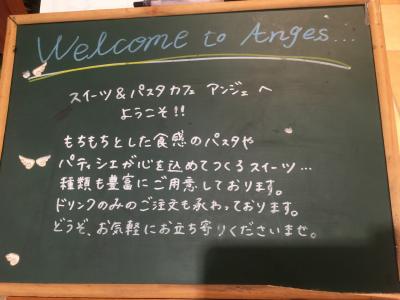 Welcome to Anges...
スイーツ&パスタカフェ アンジェへ
ようこそ!!
もちもちとした食感のパスタや
パティシエが心を込めてつくるスイーツ…
種類も豊富にご用意しております。
ドリンクのみのご注文も承わっております。
どうぞ、お気軽にお立ち寄りくださいませ。